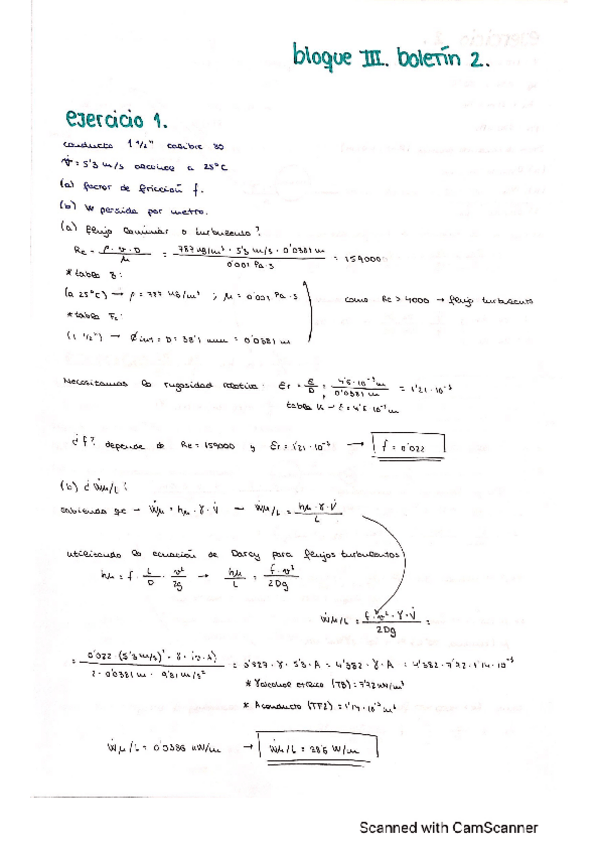 bloque III. boletín 2.
ejercicio 1.
conducto 1 1/2" calibre 80
v = 5'3 m/s alcohol a 25°C
(a) factor de fricción f.
(b) W perdida por metro.
(a) flujo laminar o turbulento?
Re = ρ · v · D / μ = 787 kg/m³ · 5'3 m/s · 0'0381 m / 0'001 Pa·s = 159000
* tabla B:
(a 25°C) → ρ = 787 kg/m³ ; μ = 0'001 Pa·s
como Re > 4000 → flujo turbulento
* tabla F2:
(1 1/2") → Ø int = D = 38'1 mm = 0'0381 m
Necesitamos la rugosidad relativa: Er = ε/D = 4'6 · 10⁻⁵ m / 0'0381 m = 1'21 · 10⁻³
tabla → ε = 4'6 · 10⁻⁵ m
¿f? depende de Re = 159000 y Er = 1'21 · 10⁻³ → f = 0'022
(b) ¿Ẇμ/L?
sabiendo que → Ẇμ = hμ · γ · V̇ → Ẇμ/L = hμ · γ · V̇ / L
utilizando la ecuación de Darcy para flujos turbulentos
hμ = f · L/D · v²/2g → hμ/L = f · v² / 2Dg
Ẇμ/L = f · v² · γ · V̇ / 2Dg =
= 0'022 (5'3 m/s)² · γ · (v · A) / 2 · 0'0381 m · 9'81 m/s² = 0'827 · γ · 5'3 · A = 4'382 · γ · A = 4'382 · 7'72 · 1'14 · 10⁻³
* γ alcohol etílico (TB) = 7'72 kN/m³
* A conducto (TF2) = 1'14 · 10⁻³ m²
Ẇμ/L = 0'0386 kW/m → Ẇμ/L = 38'6 W/m
Scanned with CamScanner